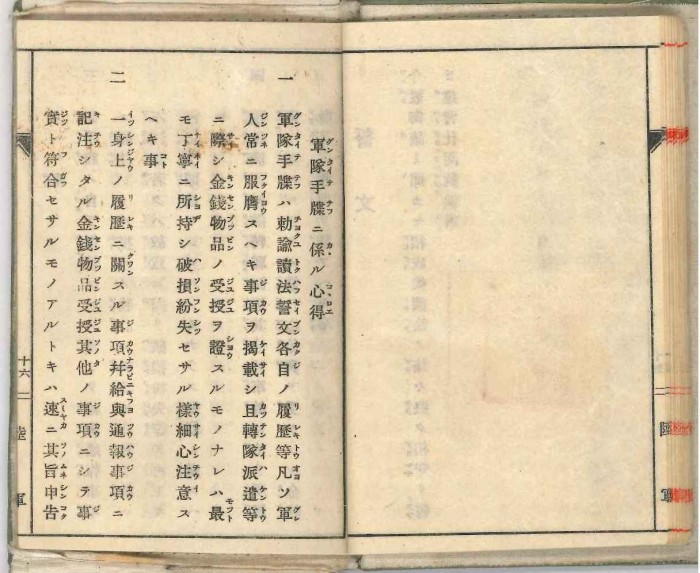 軍隊手牒ニ係ル心得
一 軍隊手牒ハ勅諭讀法誓文各自ノ履歷等凡ソ軍
人常ニ服膺スヘキ事項ヲ揭載シ且轉隊派遣等
ニ際シ金錢物品ノ受授ヲ證スルモノナレハ最
モ丁寧ニ所持シ破損紛失セサル樣細心注意ス
ヘキ事
二 一身上ノ履歷ニ關スル事項幷給與通報事項ニ
記注シタル金錢物品受授其他ノ事項ニシテ事
實ト符合セサルモノアルトキハ速ニ其旨申告
十六
陸軍